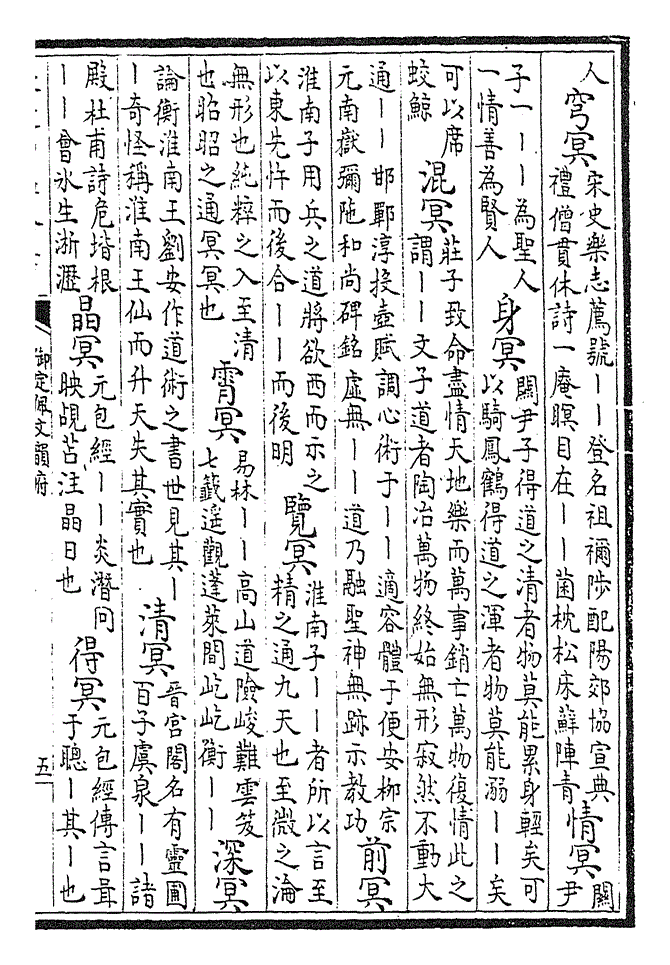 人
穹冥
宋史樂志薦號——登名祖禰陟配陽郊協宣典
禮僧貫休詩一庵瞑目在——菌枕松床蘚陣青
情冥
關
尹
子一———為聖人
一情善為賢人
身冥
關尹子得道之清者物莫能累身輕矣可
以騎鳳鶴得道之渾者物莫能溺——矣
可以席
蛟鯨
混冥
莊子致命盡情天地樂而萬事銷亡萬物復情此之
謂——文子道者陶冶萬物終始無形寂然不動大
通——邯鄲淳投壺賦調心術于——適容體于便安柳宗
元南嶽彌陁和尚碑銘虛無——道乃融聖神無跡示教功
前冥
淮南子用兵之道將欲西而示之
以東先忤而後合——而後明
覽冥
淮南子——者所以言至
精之通九天也至微之淪
無形也純粹之入至清
也昭昭之通冥冥也
霄冥
易林——高山道險峻難雲笈
七籤遥觀蓬萊間屹屹衡——
深冥
論衡淮南王劉安作道術之書世見其—
—奇怪稱淮南王仙而升天失其實也
清冥
晉宮閣名有靈圃
百子虞泉——諸
殿杜甫詩危堦根
——曾氷生淅瀝
晶冥
元包經——炎潛問
映覘苫注晶日也
得冥
元包經傳言咠
于聰—其—也
御定佩文韻府
五